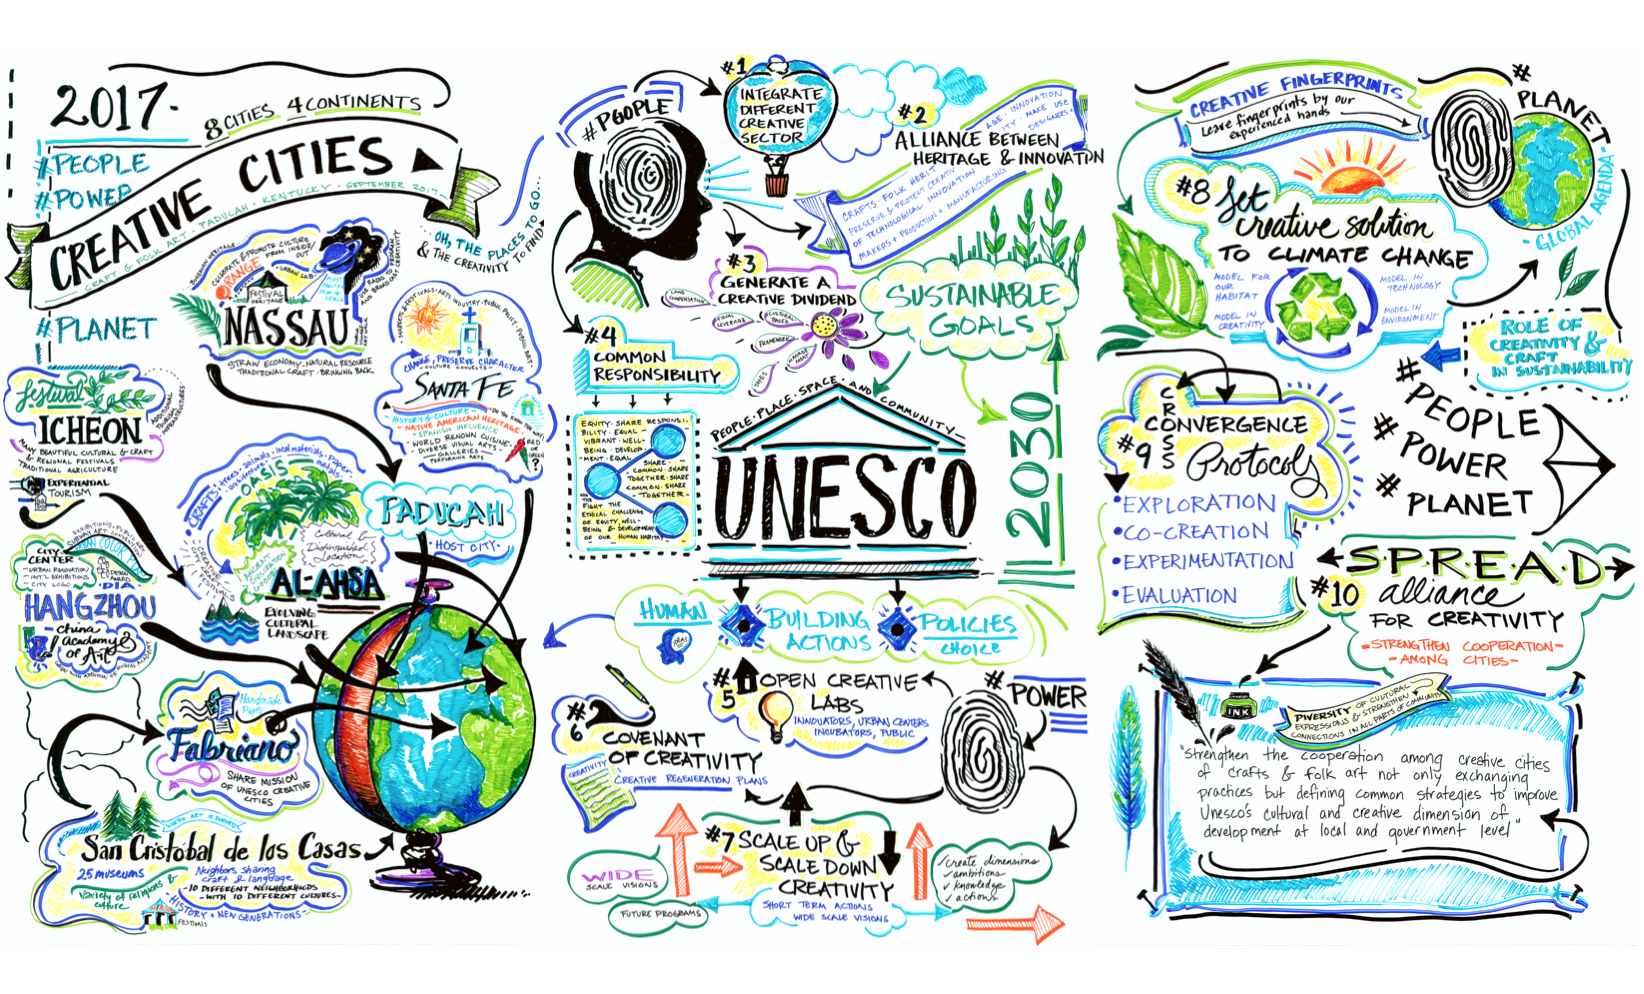 2017-
8 CITIES 4 CONTINENTS
#PEOPLE
#POWER
CREATIVE CITIES
CRAFT & FOLK ART - PADUCAH - KENTUCKY - SEPTEMBER 2017
#PLANET
OH, THE PLACES TO GO...
& THE CREATIVITY TO FIND
CELEBRATE & PROMOTE CULTURE
FROM INSIDE/
OUT
ORANGE
URBAN LAB
FESTIVAL
HERITAGE
NASSAU
STRAW ECONOMY - NATURAL RESOURCE
TRADITIONAL CRAFT - BRINGING BACK
CHANGE, PRESERVE CHARACTER
SANTA FE
HISTORY & CULTURE
- NATIVE AMERICAN HERITAGE -
- SPANISH INFLUENCE
- WORLD RENOWN CUISINE -
DIVERSE VISUAL ARTS -
- GALLERIES -
PERFORMING ARTS
RED
OR
GREEN
?
festival
ICHEON
MANY BEAUTIFUL CULTURAL & CRAFT
& REGIONAL FESTIVALS
TRADITIONAL AGRICULTURE
ADDITIONAL
TOURISM
INFRASTRUCTURES
EXPERIENTIAL
TOURISM
OASIS
Cultural &
Distinguished
Location
AL-AHSA
EVOLVING
CULTURAL
LANDSCAPE
PADUCAH
- HOST CITY -
CITY
CENTER
- URBAN RENOVATION
- INT'L EXHIBITIONS
- CITY LOGO
DIA
HANGZHOU
China
Academy
of Art
Handmade
Paper
Fabriano
SHARE MISSION
OF UNESCO CREATIVE
CITIES
San Cristóbal de los Casas
25 museums
Variety of religions &
culture
Neighbors sharing
craft & language
- 10 DIFFERENT NEIGHBORHOODS
- WITH 10 DIFFERENT CULTURES -
HISTORY + NEW GENERATIONS -
FESTIVALS
#PEOPLE
#1
INTEGRATE
DIFFERENT
CREATIVE
SECTOR
#2
ALLIANCE BETWEEN
HERITAGE & INNOVATION
PRESERVE & PROTECT
OF TECHNOLOGICAL INNOVATION
MAKERS + PRODUCTION + MANUFACTURING
#3
GENERATE A
CREATIVE DIVIDEND
LAND
COMPENSATION
FISCAL
LEVERAGE
CULTURAL
BASED
FRAMEWORK
TAXES
SUSTAINABLE
GOALS
2030
#4
COMMON
RESPONSIBILITY
EQUITY - SHARE RESPONSI-
BILITY - EQUAL -
VIBRANT - WELL-
BEING - DEVELOP-
MENT - EQUAL -
SHARE -
COMMON - SHARE
TOGETHER - SHARE
COMMON - SHARE
- TOGETHER -
FIGHT THE
ETHICAL CHALLENGE
OF EQUITY, WELL-
BEING & DEVELOPMENT
OF OUR HUMAN HABITAT
PEOPLE - PLACE - SPACE - AND COMMUNITY -
UNESCO
HUMAN
IDEAS
BUILDING
ACTIONS
POLICIES
CHOICE
#5
OPEN CREATIVE
LABS
INNOVATORS, URBAN CENTERS
INCUBATORS, PUBLIC
#POWER
#6
COVENANT
OF CREATIVITY
CREATIVE REGENERATION PLANS
CREATIVITY
#7 SCALE UP &
SCALE DOWN
CREATIVITY
SHORT TERM ACTIONS
WIDE SCALE VISIONS
WIDE
SCALE VISIONS
FUTURE PROGRAMS
✓ create dimensions
✓ ambitions
✓ knowledge
✓ actions
CREATIVE FINGERPRINTS
Leave fingerprints by our
experienced hands
#PLANET
- GLOBAL AGENDA -
#8 Set
creative solution
TO CLIMATE CHANGE
MODEL FOR
OUR
HABITAT
MODEL IN
CREATIVITY
MODEL IN
TECHNOLOGY
MODEL IN
ENVIRONMENT
ROLE OF
CREATIVITY &
CRAFT
IN SUSTAINABILITY
#PEOPLE
#POWER
#PLANET
#9
CROSS
CONVERGENCE
Protocols
• EXPLORATION
• CO-CREATION
• EXPERIMENTATION
• EVALUATION
S·P·R·E·A·D
#10
alliance
FOR CREATIVITY
- STRENGTHEN COOPERATION -
- AMONG CITIES -
INK
DIVERSITY OF CULTURAL
EXPRESSIONS & STRENGTHEN
CONNECTIONS IN ALL PARTS OF COMMUNITY
"Strengthen the cooperation among creative cities
of crafts & folk art not only exchanging
practices but defining common strategies to improve
Unesco's cultural and creative dimension of
development at local and government level"